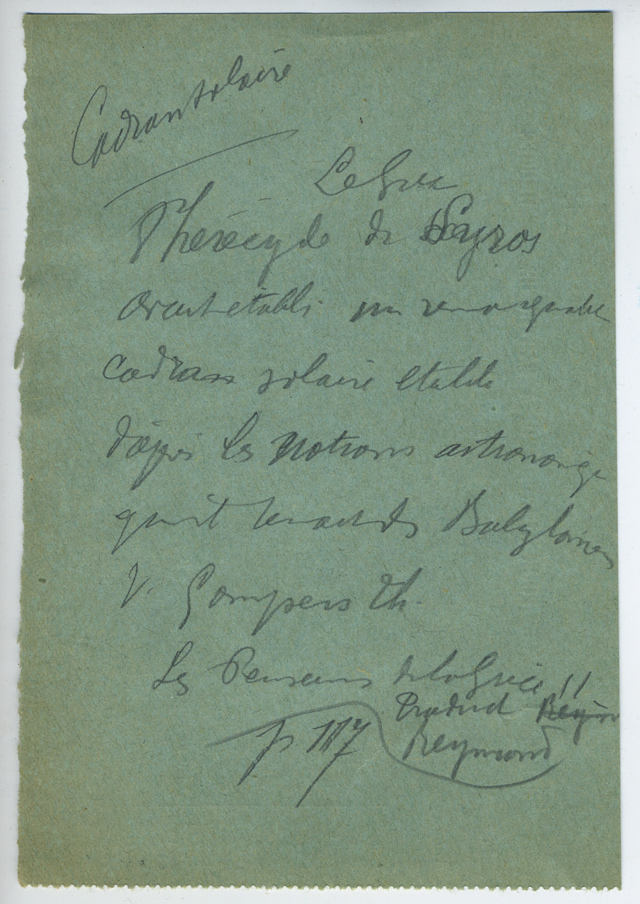 Cadran solaire
Le Grec
Phérécyde de Scyros
avait établi un remarquable
cadran solaire etabli
d'après les notions astronomiq
qu'il tenait des Babylonien
V. Gomperz Th.
Les Penseurs de la Grèce !!
Traduct Reymo
p 117 Reymond